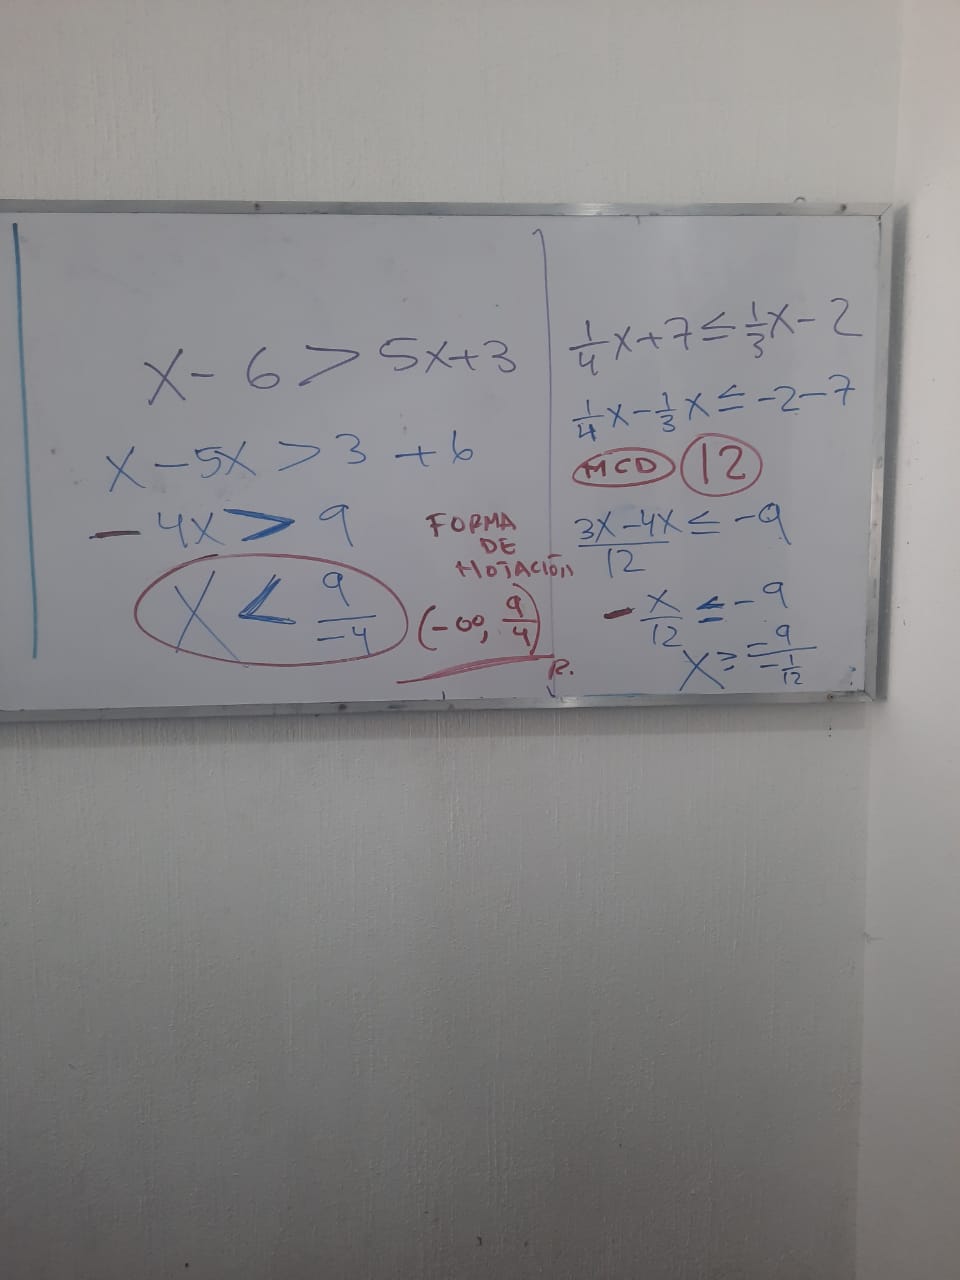 x - 6 > 5x + 3
x - 5x > 3 + 6
- 4x > 9
x < 9/-4
FORMA
DE
NOTACIÓN
(-∞, 9/4)
R.
1/4 x + 7 ≤ 1/3 x - 2
1/4 x - 1/3 x ≤ -2 - 7
MCD 12
3x - 4x / 12 ≤ -9
- x/12 ≤ -9
x ≥ -9 / -1/12